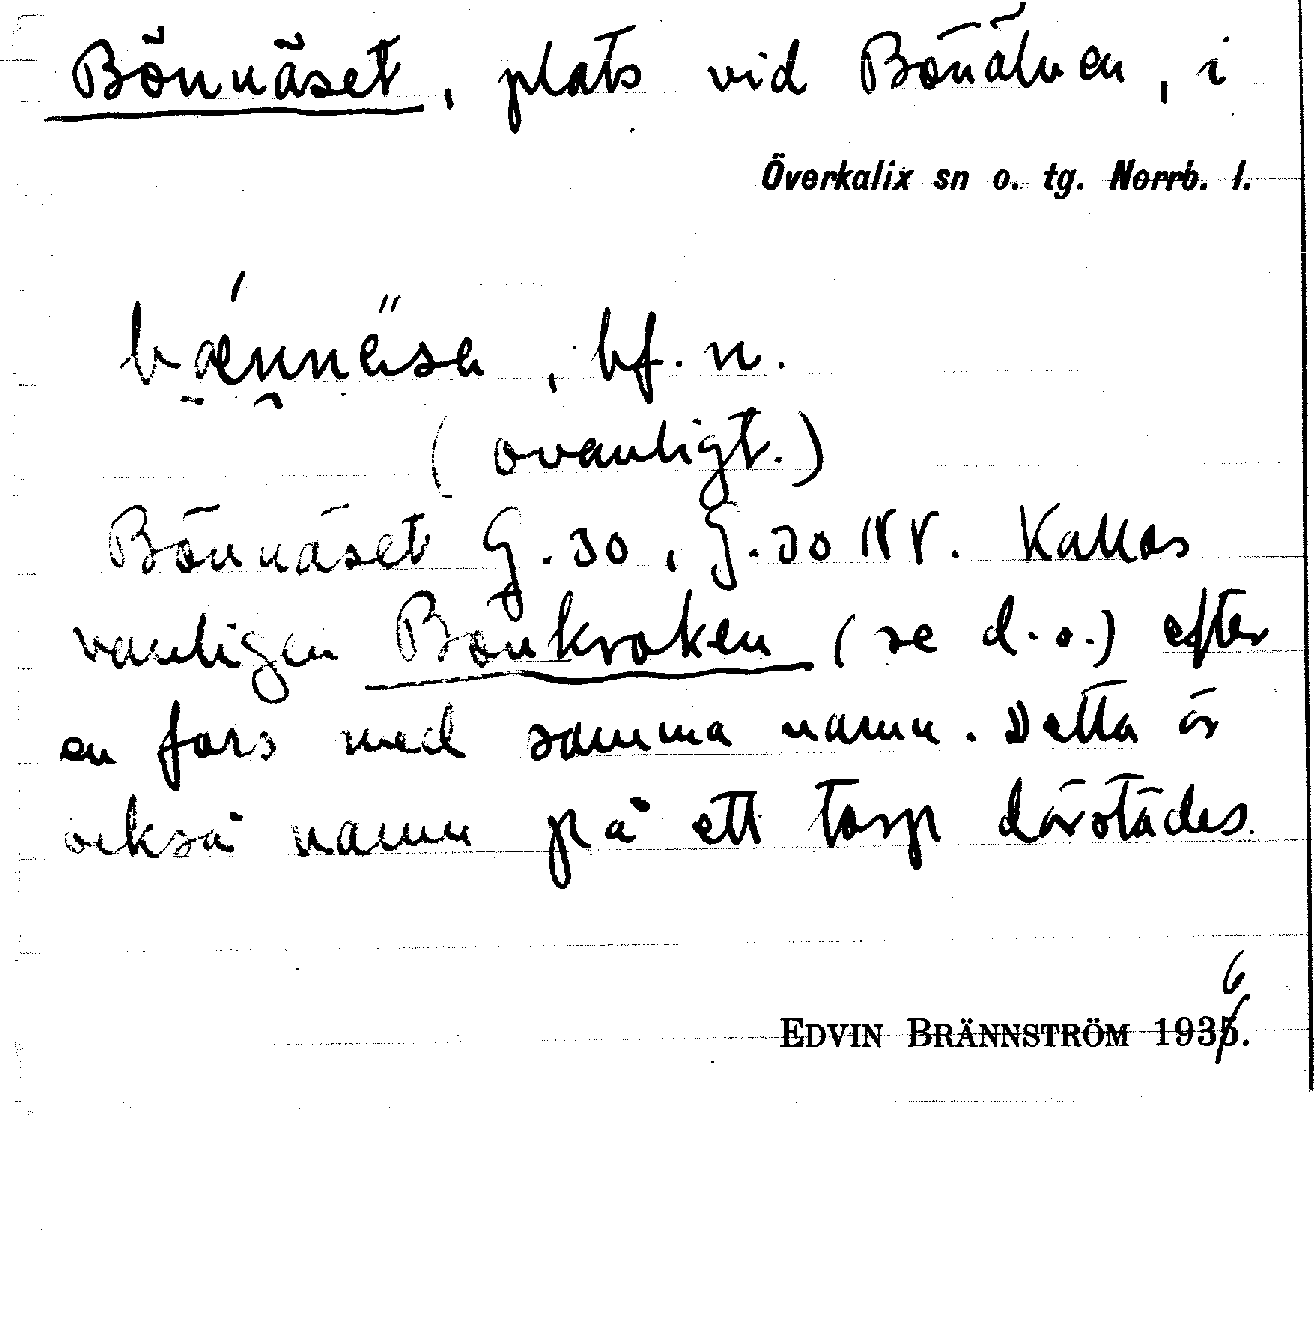 Bönnäset, plats vid Bönälven, i
Överkalix sn o. tg. Norrb. l.
bænnäsa, bf. n.
(ovanligt.)
Bönnäset G. 30, J. 30 NV. Kallas
vanligen Bönkroken (se d. o.) efter
en fors med samma namn. Detta är
också namn på ett torp därstädes.
6
EDVIN BRÄNNSTRÖM 1935.